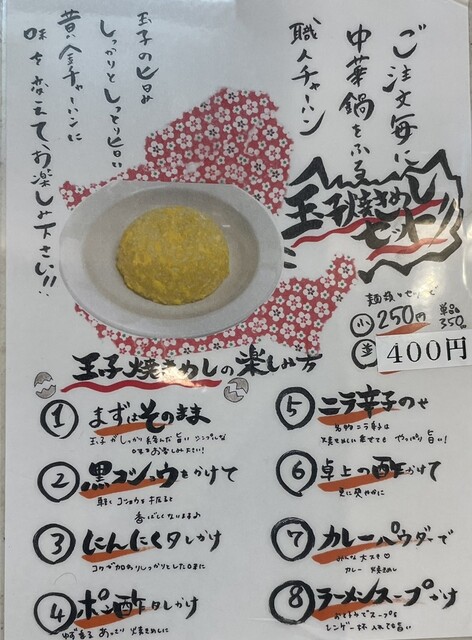 ご注文毎に
中華鍋をふる
職人チャーハン
玉子の旨み
しっかりとしっとり旨い
黄金チャーハンに
味を変えて、お楽しみ下さい!!
玉子焼きめし
セット!!
麺類とセットで
小 250円
単品
350
並
400円
玉子焼きめしの楽しみ方
① まずはそのまま
玉子がしっかり絡んだ旨いシンプルな
味をお楽しみ下さい!
② 黒コショウをかけて
軽くコショウをふると
香ばしくないますよ♪
③ にんにくタレかけ
コクが加わりしっかりとした味に
④ ポン酢タレかけ
ゆず香るあっさり焼きめしに
⑤ ニラ辛子のせ
名物ニラ辛子は
焼きめしに乗せても やっぱり旨い!
⑥ 卓上の酢かけて
更に爽やかに
⑦ カレーパウダーで
みんな大スキ♡
カレー焼きめし
⑧ ラーメンスープかけ
おとも
スープを
レンゲ一杯入れても旨い